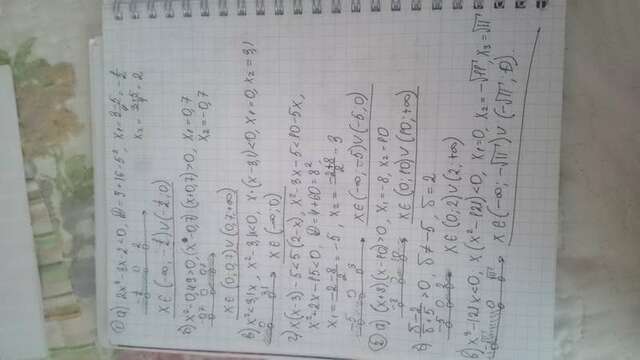 ① а) 2x²-3x-2<0, D=9+16=5², x₁=(3-5)/4=-1/2
x₂=(3+5)/4=2
-1/2 0 2
x∈(-∞,-1/2)∪(-1/2,0)
б) x²-0,49>0, (x-0,7)(x+0,7)>0, x₁=0,7
x₂=-0,7
-0,7 0 0,7
x∈(0,0,7)∪(0,7,+∞)
в) x²<3,1x, x²-3,1<0, x·(x-3,1)<0, x₁=0, x₂=3,1
0 3,1
x∈(-∞;0)
г) x(x-3)-5<5(2-x), x²-3x-5<10-5x,
x²+2x-15<0, D=4+60=8²,
x₁=(-2-8)/2=-5, x₂=(-2+8)/2=3
-5 0 3
x∈(-∞,-5)∪(-5,0)
② а) (x+8)(x-10)>0, x₁=-8, x₂=10
-8 0 10
x∈(0;10)∪(10;+∞)
б) (5-2)/(5+5)>0, 5≠-5, 5=2
-5 0 2
x∈(0;2)∪(2;+∞)
в) x³-121x<0, x(x²-121)<0, x₁=0, x₂=-√11, x₃=√11
-√11 0 √11
x∈(-∞;-√11)∪(-√11,0)